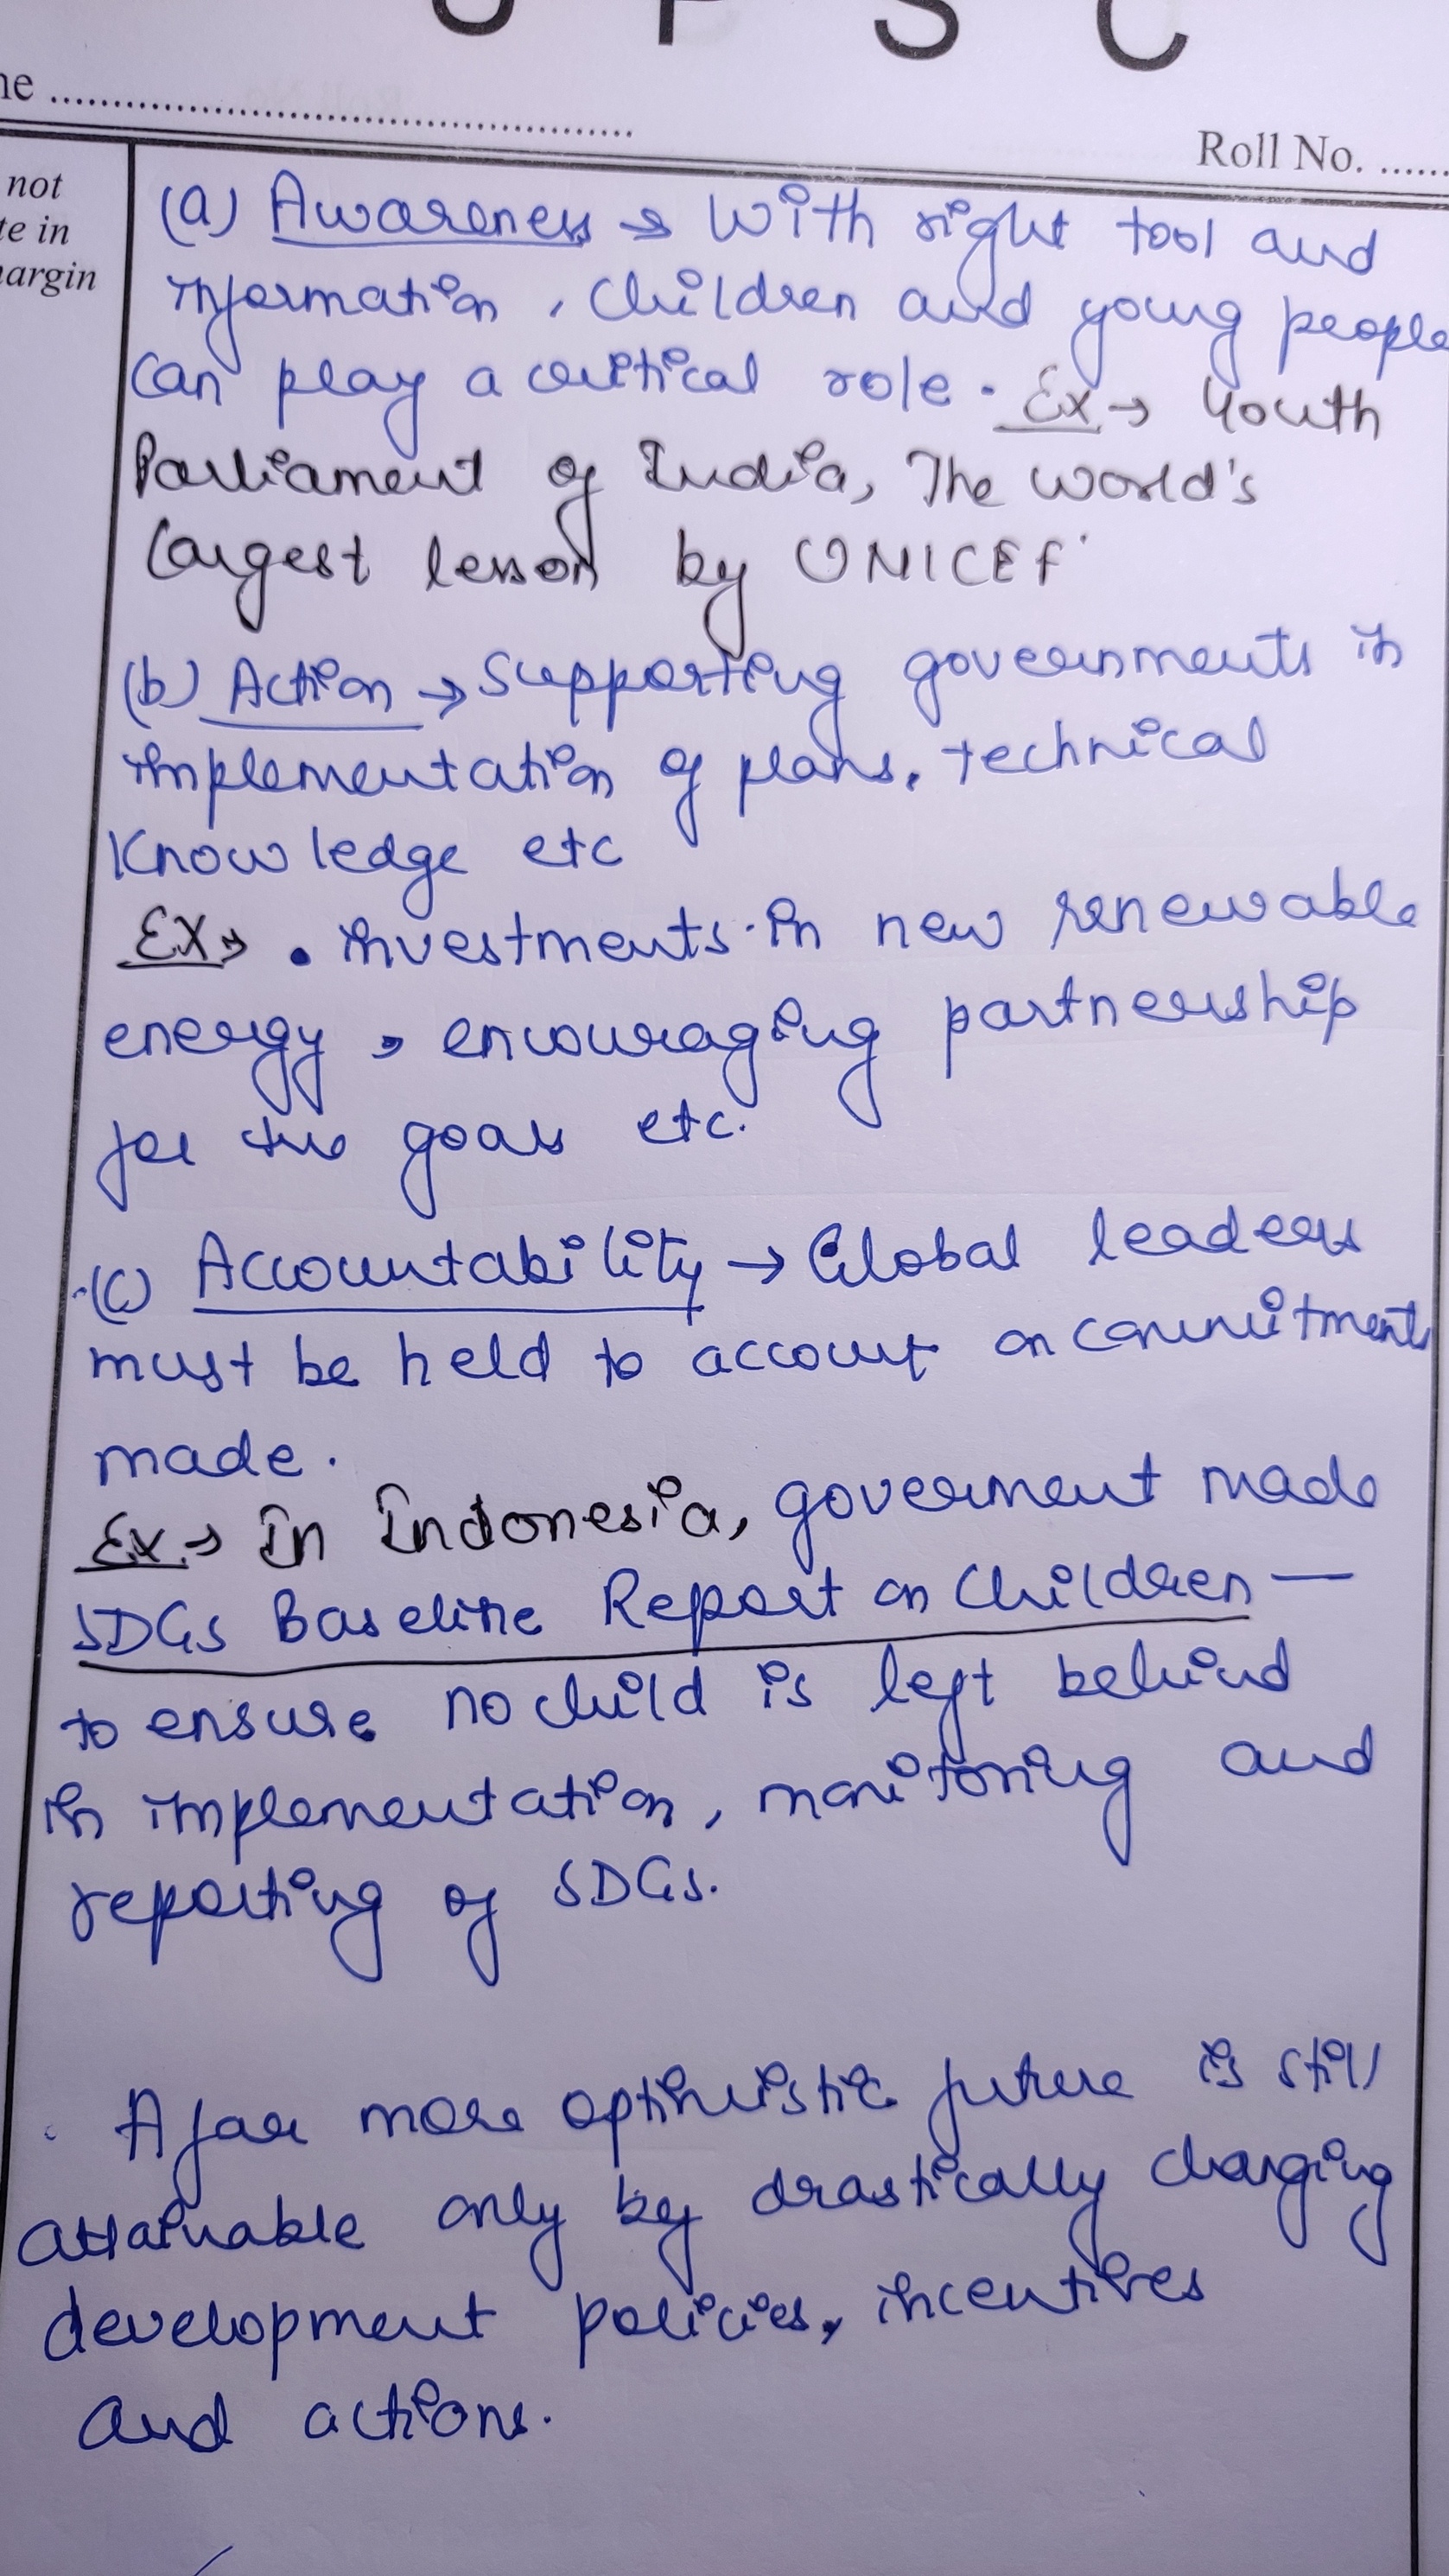 U P S C
me ........................................
Roll No. ......
not
te in
margin
(a) Awareness → With right tool and
information, Children and young people
can play a critical role. Ex → Youth
Parliament of India, The World's
largest lesson by UNICEF
(b) Action → Supporting governments in
implementation of plans, technical
Knowledge etc
Ex → • investments in new renewable
energy, encouraging partnership
for the goals etc.
(c) Accountability → Global leaders
must be held to account on commitments
made.
Ex → In Indonesia, goverment made
SDGs Baseline Report on Children —
to ensure no child is left behind
in implementation, monitoring and
reporting of SDGs.
A far more optimistic future is still
attainable only by drastically changing
development policies, incentives
and actions.